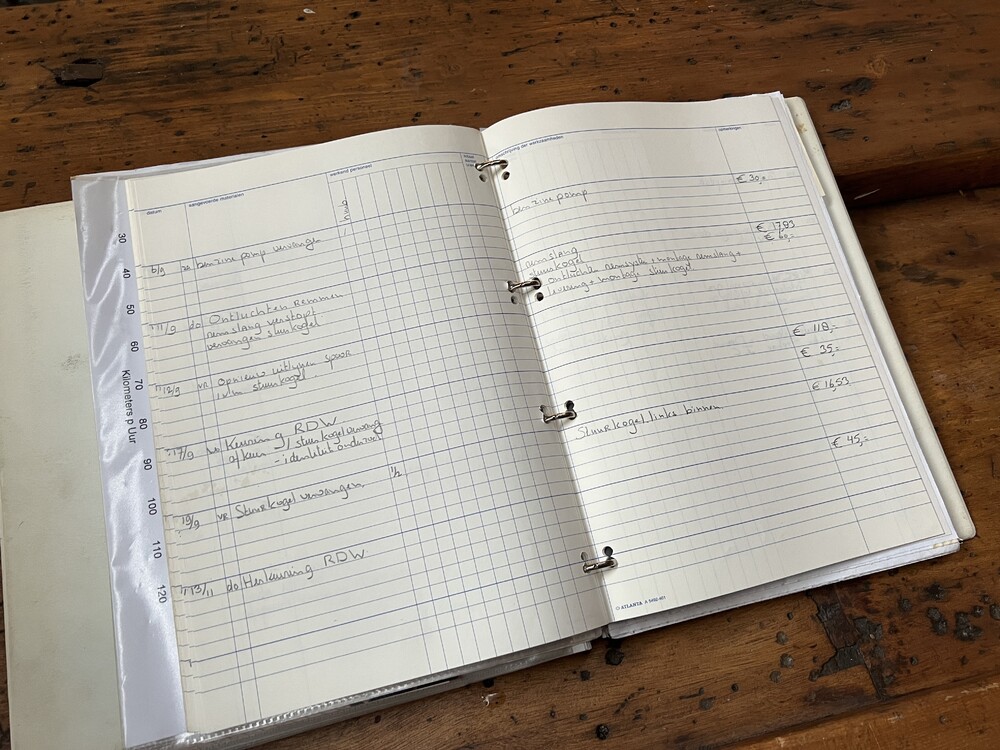 datum aangewende materialen werkend personeel
5/9 vr benzine pomp vervangen
11/9 do Ontluchten Remmen
remslang verstopt
vervangen stuurkogel
12/9 vr Opnieuw uitlijnen spoor
ivm stuurkogel
17/9 wo Keuring RDW
afkeur / stuurkogel vervang
- identiteit onderzoek
19/9 vr Stuurkogel vervangen 1/2
13/11 do Herkeuring RDW
30
40
50
60
70
80
90
100
110
120
Kilometers p Uur
omschrijving der werkzaamheden opmerkingen
benzine pomp € 30,=
remslang € 17,93
stuurkogel € 60,=
ontluchten remsyste + montage remslang +
levering + montage stuurkogel
€ 118,=
€ 35,=
€ 16,53
Stuurkogel links binnen
€ 45,=
ATLANTA A 5492-401